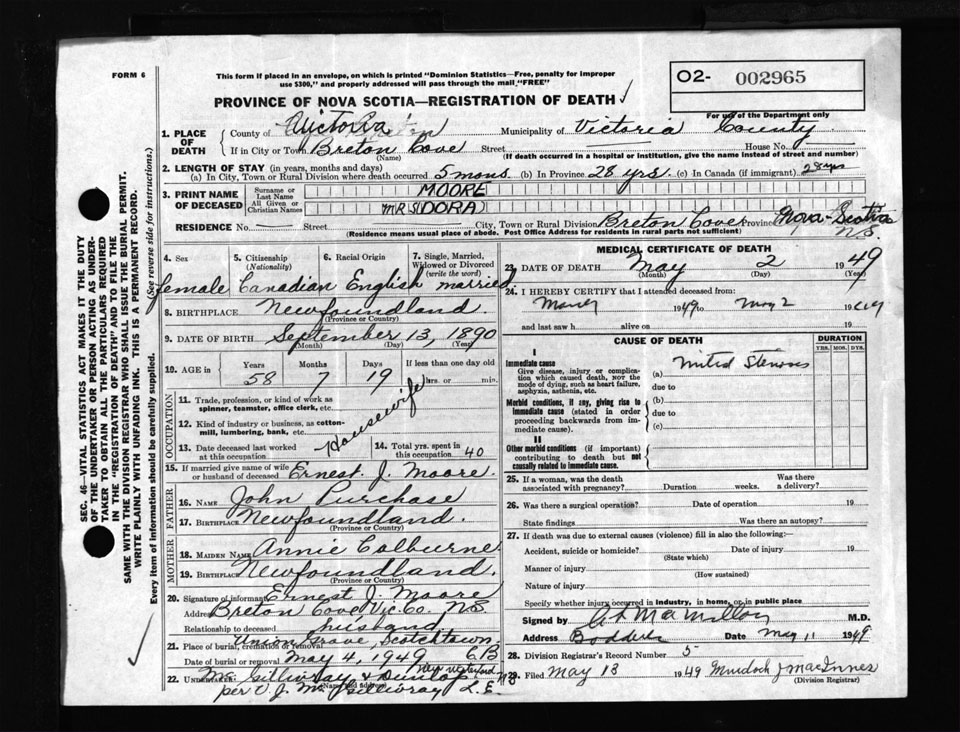 FORM 6
This form if placed in an envelope, on which is printed "Dominion Statistics—Free, penalty for improper
use $300," and properly addressed will pass through the mail "FREE"
O2- 002965
For use of the Department only
PROVINCE OF NOVA SCOTIA—REGISTRATION OF DEATH
1. PLACE OF DEATH
County of Victoria Municipality of Victoria County
If in City or Town Breton Cove Street House No.
(Name) (If death occurred in a hospital or institution, give the name instead of street and number)
2. LENGTH OF STAY (in years, months and days)
(a) In City, Town or Rural Division where death occurred 5 mons. (b) In Province 28 yrs. (c) In Canada (if immigrant) 28 yrs
3. PRINT NAME OF DECEASED
Surname or Last Name MOORE
All Given or Christian Names MRS (DORA)
RESIDENCE No. — Street City, Town or Rural Division Breton Cove Province Nova-Scotia
N.S.
(Residence means usual place of abode. Post Office Address for residents in rural parts not sufficient)
4. Sex
female
5. Citizenship (Nationality)
Canadian
6. Racial Origin
English
7. Single, Married, Widowed or Divorced (write the word)
married
8. BIRTHPLACE Newfoundland
(Province or Country)
9. DATE OF BIRTH September 13, 1890
(Month) (Day) (Year)
10. AGE in Years 58 Months 7 Days 19 If less than one day old
hrs. or min.
OCCUPATION
11. Trade, profession, or kind of work as
spinner, teamster, office clerk, etc.
Housewife
12. Kind of industry or business, as cotton-
mill, lumbering, bank, etc.
13. Date deceased last worked
at this occupation
14. Total yrs. spent in
this occupation 40
15. If married give name of wife
or husband of deceased Ernest. J. Moore.
FATHER
16. NAME John Purchase
17. BIRTHPLACE Newfoundland.
(Province or Country)
MOTHER
18. MAIDEN NAME Annie Colburne
19. BIRTHPLACE Newfoundland.
(Province or Country)
20. Signature of informant Ernest J. Moore
Address Breton Cove Vic. Co. N.S.
Relationship to deceased husband
21. Place of burial, cremation or removal Union Grave, Scotchtown.
Date of burial or removal May 4, 1949 CB
New Waterford N.S
22. UNDERTAKER McGillivray & Dunlop
(Name and address)
per V. J. McGillivray L.E.
MEDICAL CERTIFICATE OF DEATH
23. DATE OF DEATH May 2 1949
(Month) (Day) (Year)
24. I HEREBY CERTIFY that I attended deceased from:
1949 to May 2 1949
and last saw h alive on 19
CAUSE OF DEATH
DURATION
YRS. MOS. DYS.
I
Immediate cause
Give disease, injury or complica-
tion which caused death, not the
mode of dying, such as heart failure,
asphyxia, asthenia, etc.
(a) Mitral Stenosis
due to
Morbid conditions, if any, giving rise to
immediate cause (stated in order
proceeding backwards from im-
mediate cause).
(b)
due to
(c)
II
Other morbid conditions (if important)
contributing to death but not
causally related to immediate cause.
25. If a woman, was the death
associated with pregnancy? Duration weeks. Was there
a delivery?
26. Was there a surgical operation? Date of operation 19
State findings Was there an autopsy?
27. If death was due to external causes (violence) fill in also the following:—
Accident, suicide or homicide? Date of injury 19
(State which)
Manner of injury
(How sustained)
Nature of injury
Specify whether injury occurred in industry, in home, or in public place
Signed by M.D.
Address Date May 11 1949.
28. Division Registrar's Record Number 5
29. Filed May 13 1949 Murdoch J MacInnes
(Division Registrar)
SEC. 46—VITAL STATISTICS ACT MAKES IT THE DUTY
OF THE UNDERTAKER OR PERSON ACTING AS UNDER-
TAKER TO OBTAIN ALL THE PARTICULARS REQUIRED
IN THE "REGISTRATION OF DEATH" AND TO FILE THE
SAME WITH THE DIVISION REGISTRAR WHO SHALL ISSUE THE BURIAL PERMIT.
WRITE PLAINLY WITH UNFADING INK. THIS IS A PERMANENT RECORD.
Every item of information should be carefully supplied. (See reverse side for instructions.)